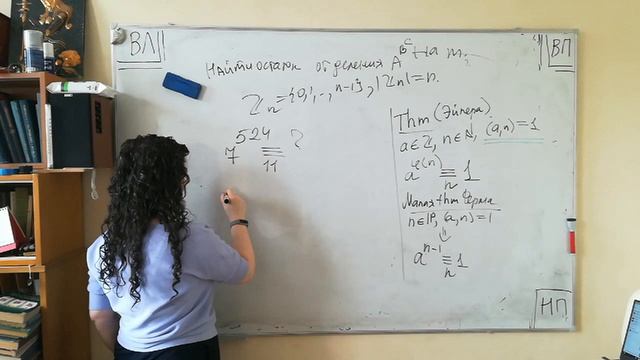 ВЛ
ВП
Найти остаток от деления A^B^C на m.
ℤₙ={0,1,..,n-1}, |ℤₙ|=n.
7^524 ≡ ?
11
Thm (Эйлера)
a∈ℤ, n∈ℕ, (a,n)=1
a^φ(n) ≡ 1
n
Малая thm Ферма
n∈ℙ, (a,n)=1
⇓
a^n-1 ≡ 1
n
НП